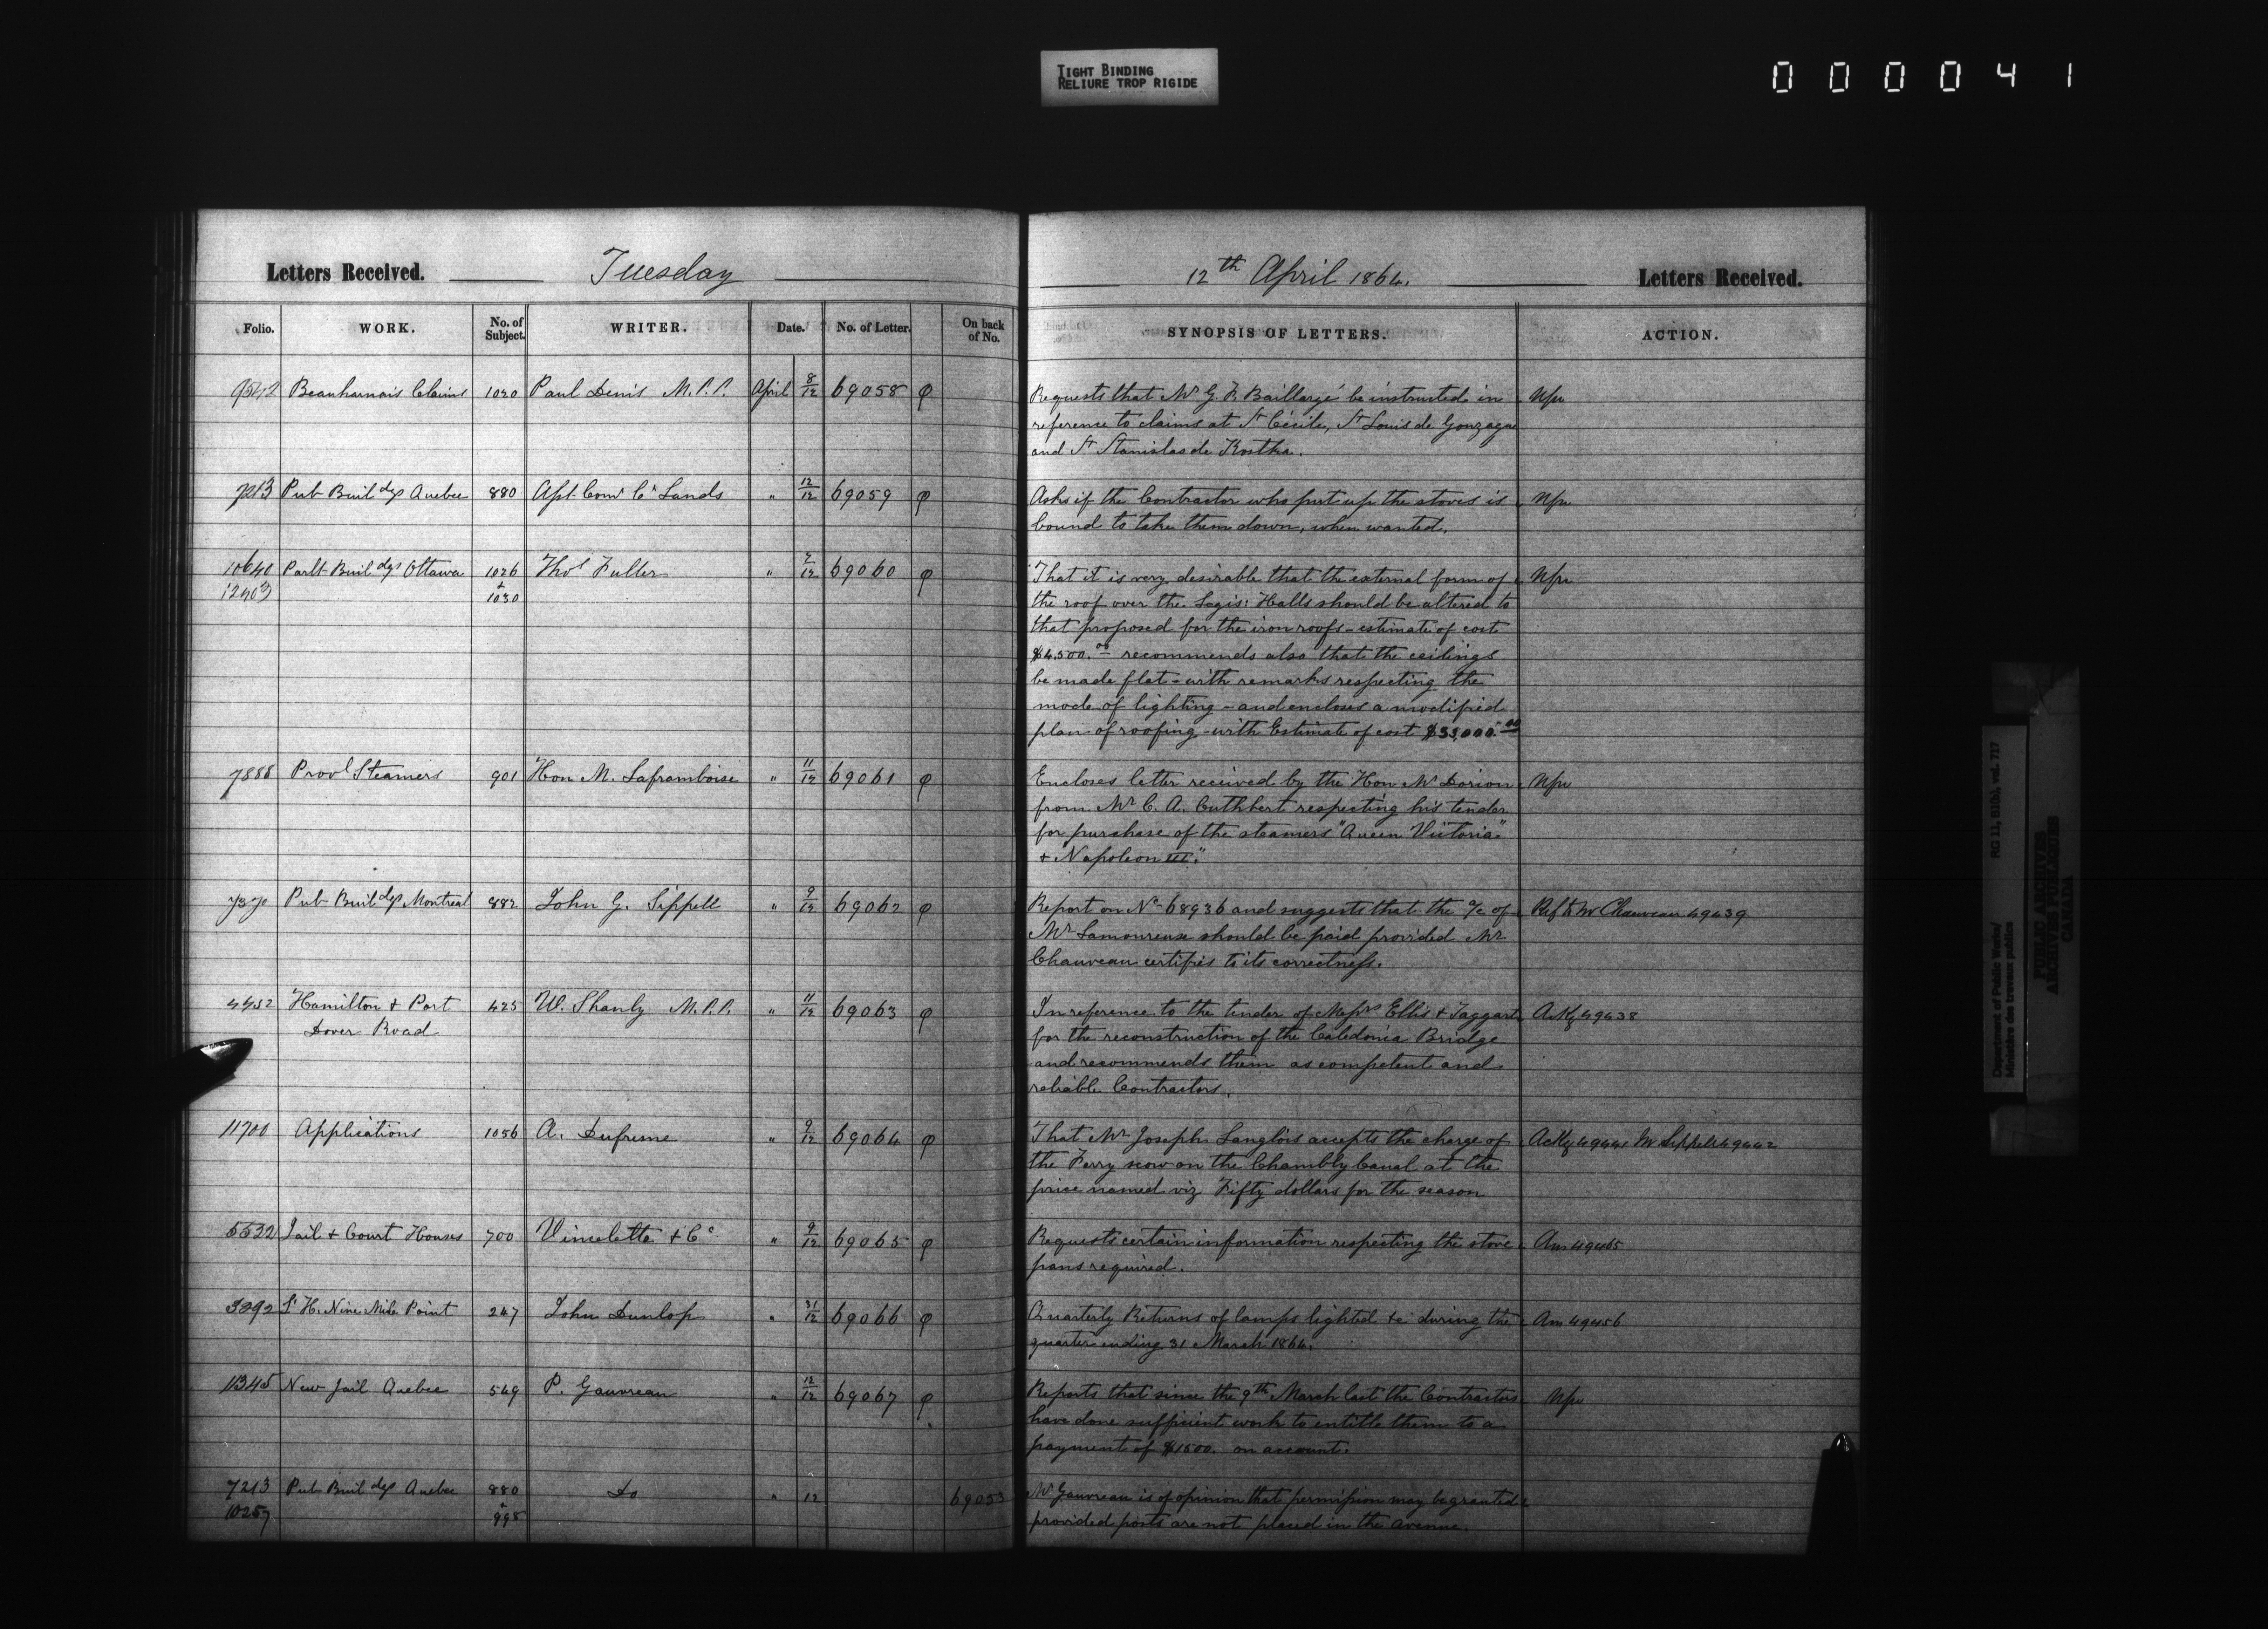 TIGHT BINDING
RELIURE TROP RIGIDE
000041
Letters Received. Tuesday
Folio. WORK. No. of Subject. WRITER. Date. No. of Letter. On back of No.
9542 Beauharnois Claims 1020 Paul Denis M.P.P. April 8/12 69058 φ
7213 Pub Buildgs Quebec 880 Asst Comr Cn Lands " 12/12 69059 φ
10640 Parlt Buildgs Ottawa 1026 Thos Fuller " 7/12 69060 φ
12403 + 1030
7888 Provl Steamers 901 Hon M. Laframboise " 11/12 69061 φ
7370 Pub Buildgs Montreal 882 John G. Sippell " 9/12 69062 φ
4452 Hamilton + Port 425 W. Shanly M.P.P. " 11/12 69063 φ
Dover Road
11700 Applications 1056 A. Dufresne " 9/12 69064 φ
5532 Jail + Court Houses 700 Vincelette + Co " 9/12 69065 φ
3892 Lt H. Nine Mile Point 247 John Dunlop " 31/12 69066 φ
11345 New Jail Quebec 549 P. Gauvreau " 12/12 69067 φ
7213 Pub Buildgs Quebec 880 Do " 12 69053
10257 + 995
12th April 1864. Letters Received.
SYNOPSIS OF LETTERS. ACTION.
Requests that Mr G. F. Baillargé be instructed in Npu
reference to claims at St Cécile, St Louis de Gonzague
and St Stanislas de Kostka.
Asks if the Contractor who put up the stoves is Npu
bound to take them down, when wanted.
That it is very desirable that the external form of Npu
the roof over the Legis: Halls should be altered to
that proposed for the iron roofs - estimate of cost
$4,500.00 recommends also that the ceilings
be made flat - with remarks respecting the
mode of lighting - and encloses a modified
plan of roofing with Estimate of cost $33,000.00
Encloses letter received by the Hon Mr Dorion Npu
from Mr C. A. Cuthbert respecting his tender
for purchase of the steamers "Queen Victoria"
+ Napoleon III."
Report on No 68936 and suggests that the a/c of Ref to Mr Chauveau 49439
Mr Lamoureux should be paid provided Mr
Chauveau certifies to its correctness.
In reference to the tender of Messrs Ellis + Taggart Ackg 49438
for the reconstruction of the Caledonia Bridge
and recommends them as competent and
reliable Contractors.
That Mr Joseph Langlois accepts the charge of Ackg 49441 Mr Sippell 49442
the Ferry scow on the Chambly Canal at the
price named viz Fifty dollars for the season
Requests certain information respecting the stove Ans 49465
pans required.
Quarterly Returns of lamps lighted &c during the Ans 49456
quarter ending 31 March 1864.
Reports that since the 9th March last the Contractors Npu
have done sufficient work to entitle them to a
payment of $1500. on account.
Mr Gauvreau is of opinion that permission may be granted
provided posts are not placed in the avenue.
Department of Public Works/ RG 11, B1(b), vol. 717
Ministère des travaux publics
PUBLIC ARCHIVES
ARCHIVES PUBLIQUES
CANADA